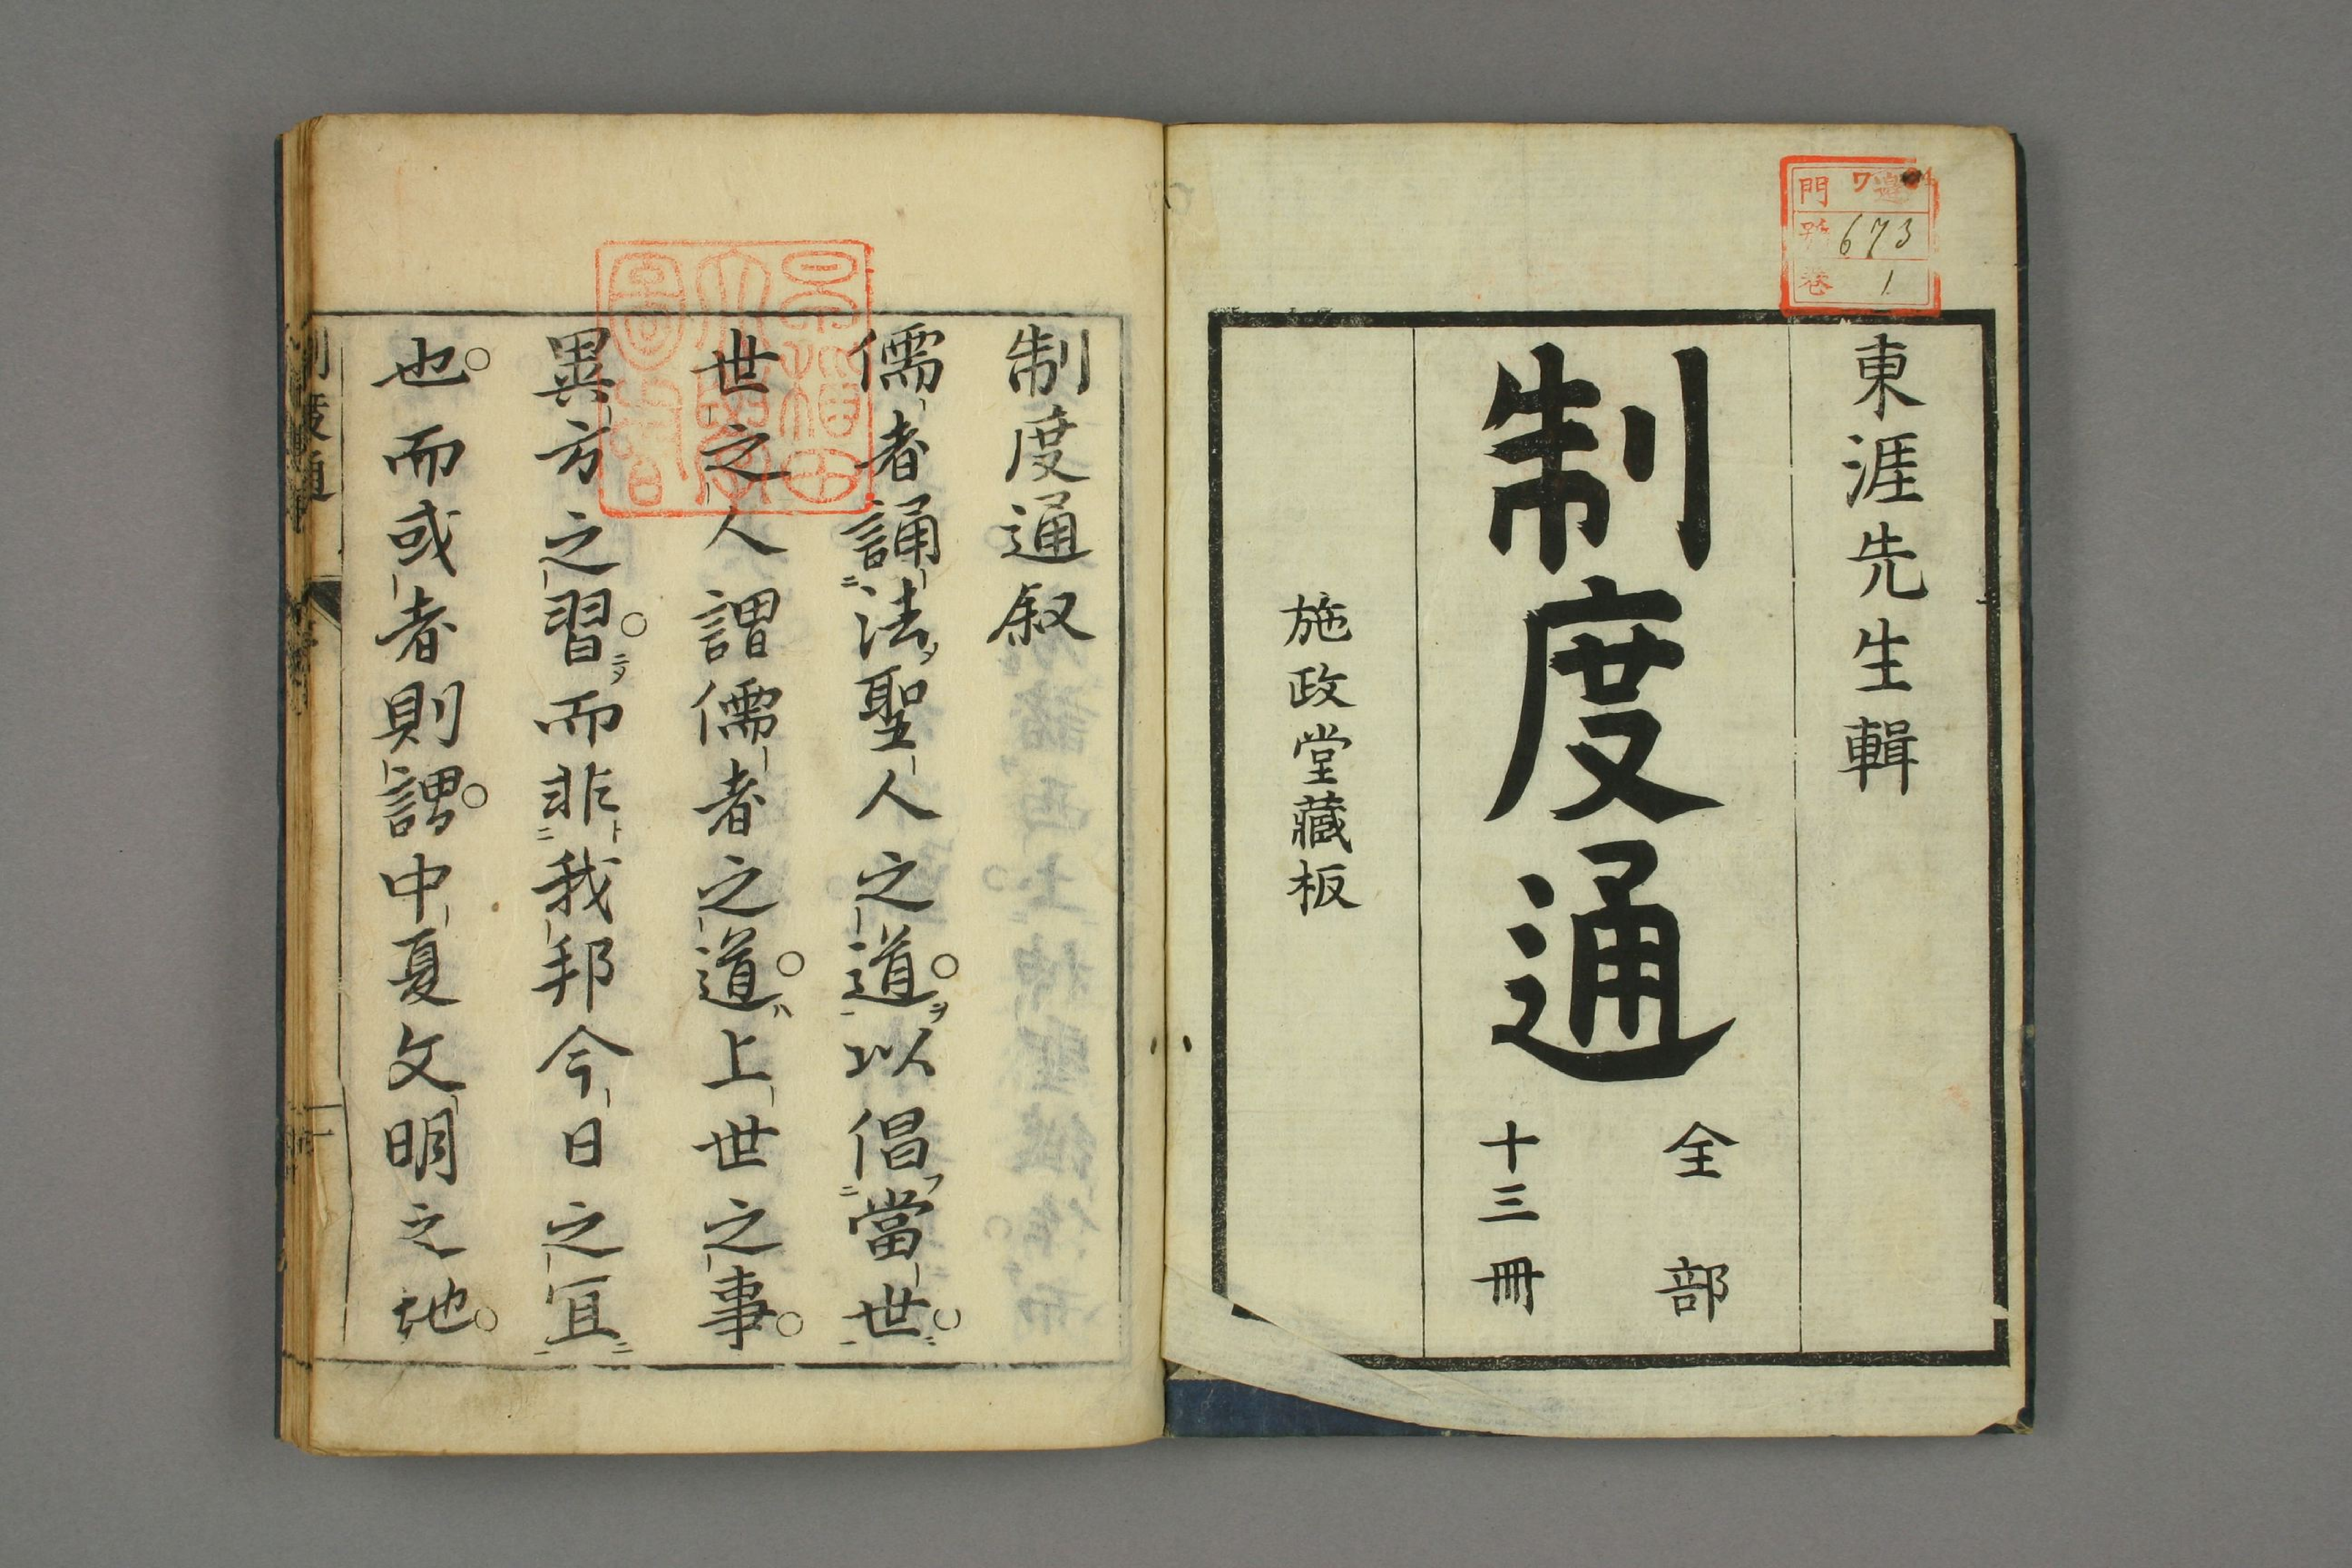 門 ワ
号 673
巻 1
東涯先生輯
制度通
全部
十三冊
施政堂藏板
早稲田
大學
圖書
制度通叙
儒者誦法聖人之道以倡當世
世之人謂儒者之道上世之事
異方之習而非我邦今日之宜
也而或者則謂中夏文明之地
制度通